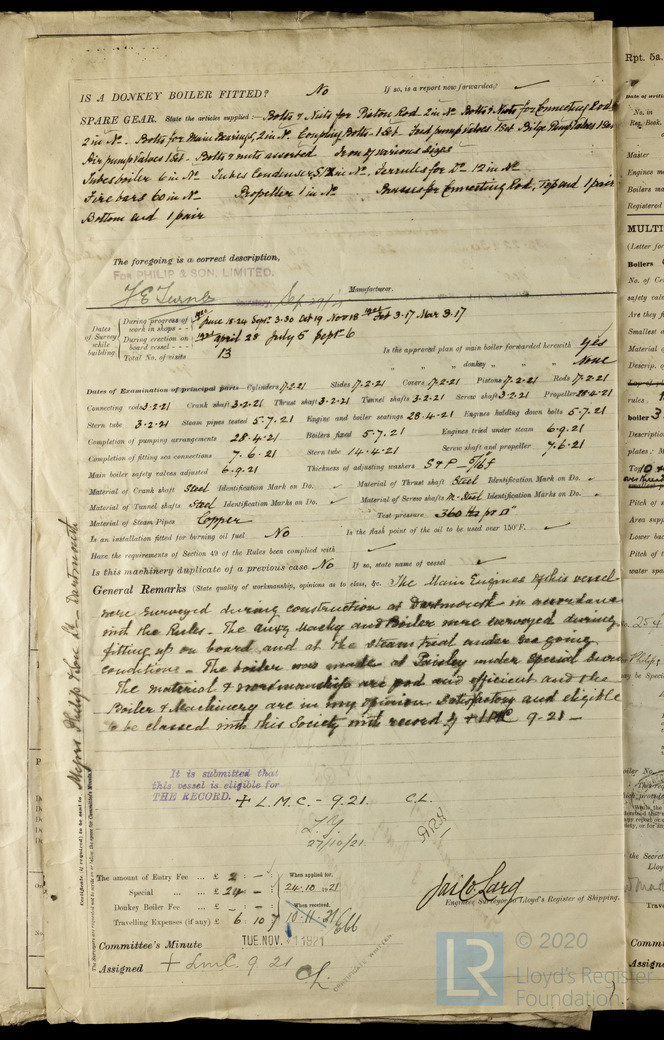 IS A DONKEY BOILER FITTED? No If so, is a report now forwarded? ✓
SPARE GEAR. State the articles supplied:— Bolts & Nuts for Piston Rod 2 in No. Bolts & Nuts for Connecting Rod
2 in No. Bolts for Main Bearings, 2 in No. Coupling Bolts 1 Set. Feed pump Valves 1 Set Bilge Pump Valves 1 Set
Air pump Valves 1 Set. Bolts & nuts assorted Iron of various sizes
Tubes boiler 6 in No. Tubes Condenser in No. Ferrules for Do. 12 in No.
Fire bars 60 in No. Propeller 1 in No. Brasses for Connecting Rod, Top and 1 pair
Bottom and 1 pair
The foregoing is a correct description,
For PHILIP & SON, LIMITED.
Manufacturer.
Dates of Survey while building
During progress of work in shops - - June 18.24 Sept. 3.30 Oct 19 Nov 18 Feb 3.17 Mar 3.17
During erection on board vessel - - - 1921 April 28 July 5 Sept. 6
Total No. of visits 13
Is the approved plan of main boiler forwarded herewith yes
" " " donkey " " " None
Dates of Examination of principal parts Cylinders 17.2.21 Slides 17.2.21 Covers 17.2.21 Pistons 17.2.21 Rods 17.2.21
Connecting rods 3.2.21 Crank shaft 3.2.21 Thrust shaft 3.2.21 Tunnel shafts 3.2.21 Screw shaft 3.2.21 Propeller 28.4.21
Stern tube 3.2.21 Steam pipes tested 5.7.21 Engine and boiler seatings 28.4.21 Engines holding down bolts 5.7.21
Completion of pumping arrangements 28.4.21 Boilers fixed 5.7.21 Engines tried under steam 6.9.21
Completion of fitting sea connections 7.6.21 Stern tube 14.4.21 Screw shaft and propeller 7.6.21
Main boiler safety valves adjusted 6.9.21 Thickness of adjusting washers
Material of Crank shaft Steel Identification Mark on Do. ✓ Material of Thrust shaft Steel Identification Mark on Do. ✓
Material of Tunnel shafts Steel Identification Marks on Do. ✓ Material of Screw shafts Steel Identification Marks on Do. ✓
Material of Steam Pipes Copper Test pressure 360 lbs pr □"
Is an installation fitted for burning oil fuel No Is the flash point of the oil to be used over 150°F. ✓
Have the requirements of Section 49 of the Rules been complied with ✓
Is this machinery duplicate of a previous case No If so, state name of vessel ✓
General Remarks (State quality of workmanship, opinions as to class, &c. The Main Engines of this vessel
were surveyed during construction at Dartmouth in accordance
with the Rules. The Auxy Machy and Boiler were surveyed during
fitting up on board and at the steam trial under sea going
conditions. The boiler was made at Paisley under Special Survey
The material & workmanship are good and efficient and the
Boiler & Machinery are in my opinion satisfactory and eligible
to be classed with this Society with record of + LMC 9-21 —
It is submitted that
this vessel is eligible for
THE RECORD. + L.M.C. - 9.21. C.L.
27/10/21.
The amount of Entry Fee ... £ 2 : - When applied for,
Special ... ... £ 24 : - 24.10.1921
Donkey Boiler Fee ... £ - : - When received,
Travelling Expenses (if any) £ 6 : 10 : 7 10.11.21
Engineer Surveyor to Lloyd's Register of Shipping.
Committee's Minute TUE. NOV. 1 1921
Assigned + LMC. 9.21
CERTIFICATE WRITTEN
Certificate (if required) to be sent to Messrs Philip & Son Ld Dartmouth
The Surveyors are requested not to write on or below the space for Committee's Minute.
Rpt. 5a.
No. in
Reg. Book.
Master
Engines
Boilers
Registered
MULTI
(Letter for
Boilers
safety valve
Are they
Smallest
Material of
boiler 3
Description
Pitch of
Area supp
Lower back
Pitch of
water spa
254
© 2020
Lloyd's Register
Foundation
LR